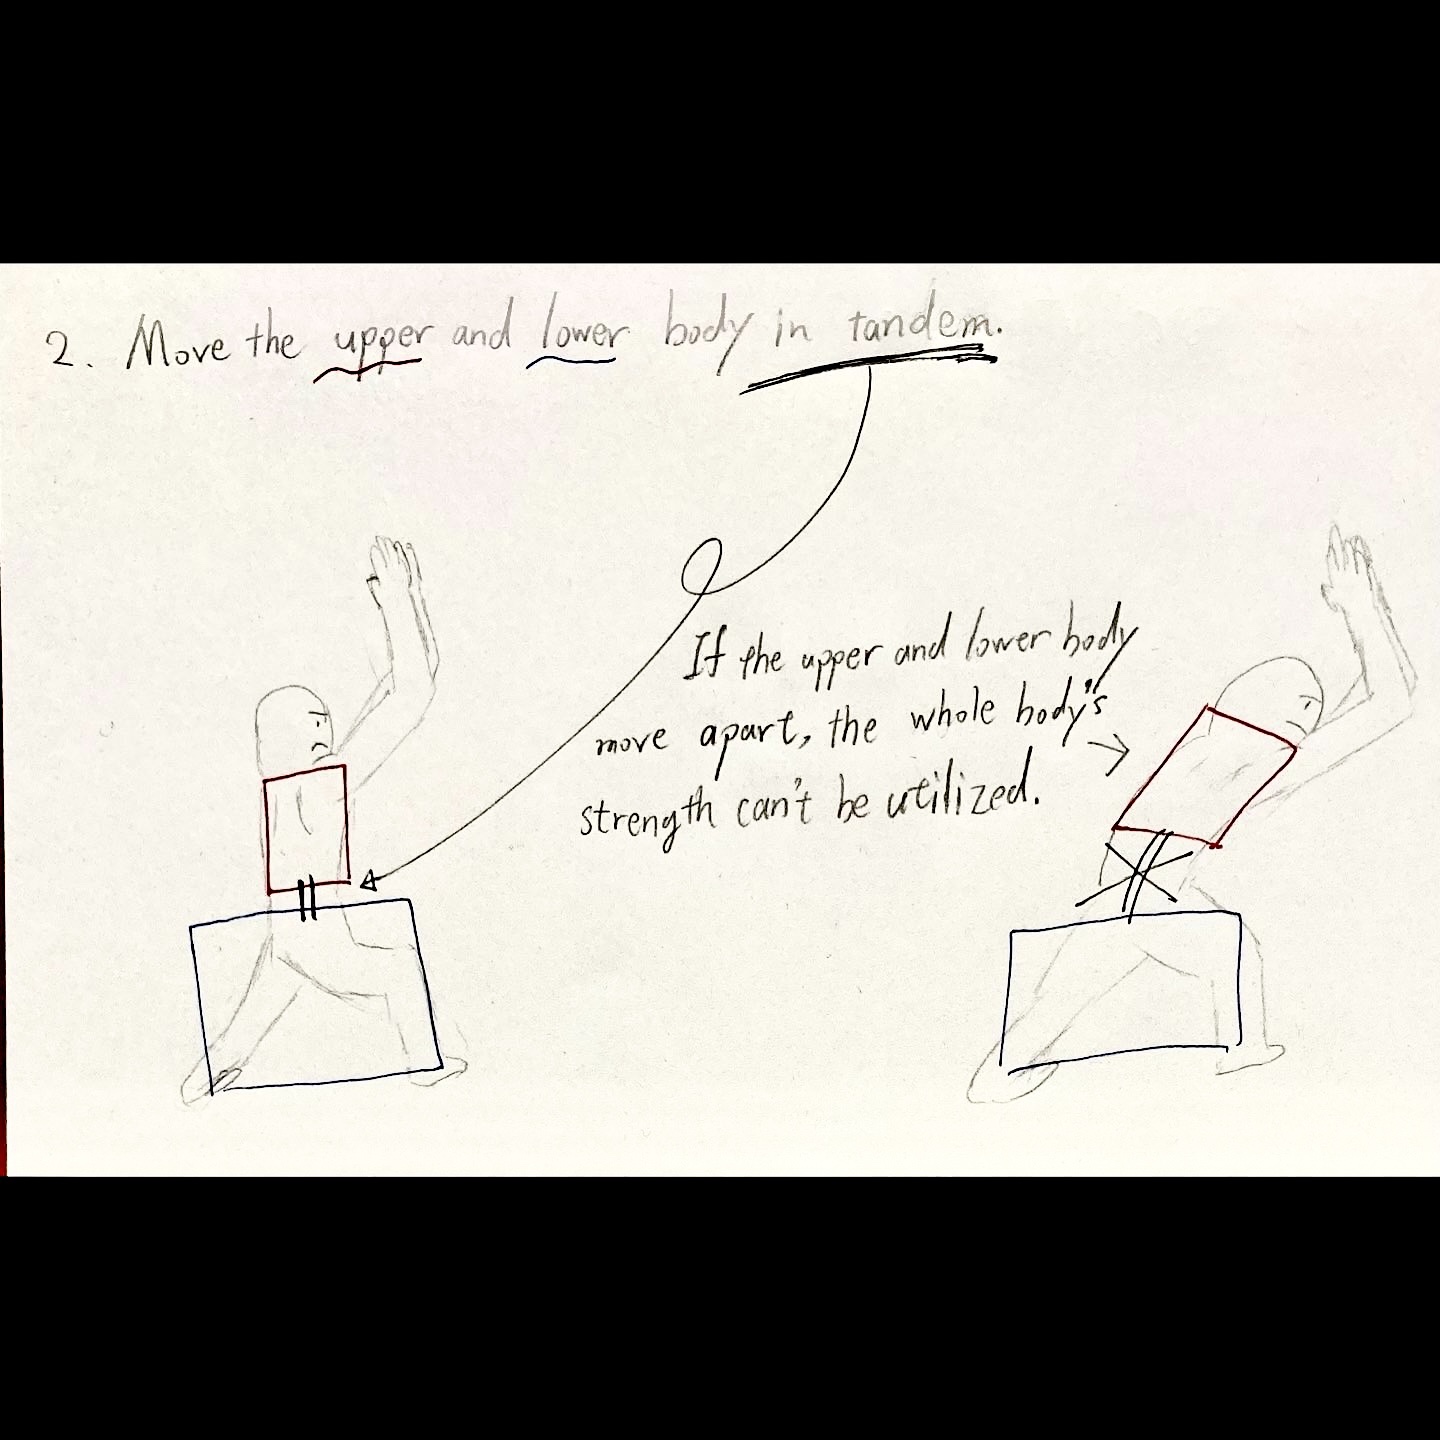 2. Move the upper and lower body in tandem.
If the upper and lower body
move apart, the whole body's
strength can't be utilized.